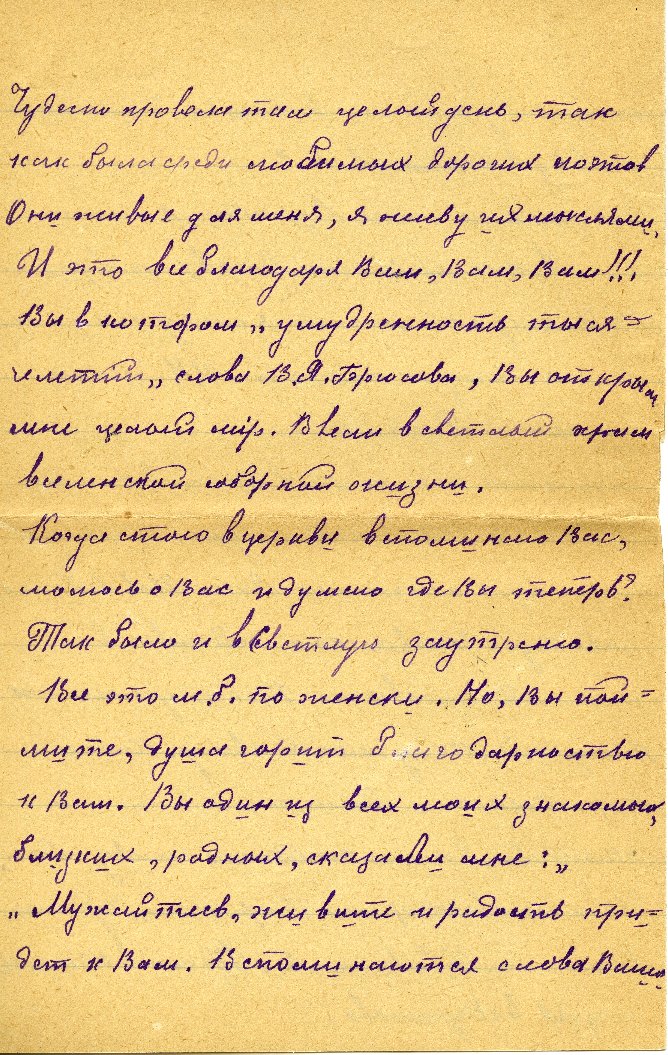 Чудесно провела там целый день, так
как была среди любимых дорогих поэтов
Они живые для меня, я живу их мыслями.
И это все благодаря Вам, Вам, Вам!!!
Вы в котором „умудренность тыся=
челетий„ слова В.Я. Брюсова, Вы открыли
мне целый мiр. Ввели в светлый храм
вселенской соборной жизни.
Когда стою в церкви вспоминаю Вас,
молюсь о Вас и думаю где Вы теперь?
Так было и в Светлую заутреню.
Все это м.б. по женски. Но, Вы пой=
мите, душа горит благодарностью
к Вам. Вы один из всех моих знакомых,
близких, родных, сказали мне: „
„Мужайтесь, живите и радость при=
дет к Вам. Вспоминаются слова Ваши